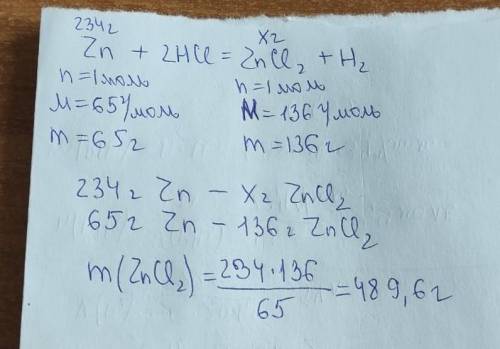 234г xг
Zn + 2HCl = ZnCl₂ + H₂
n=1моль n=1моль
M=65г/моль M=136г/моль
m=65г m=136г
234г Zn – xг ZnCl₂
65г Zn – 136г ZnCl₂
m(ZnCl₂) = 234·136 / 65 = 489,6г